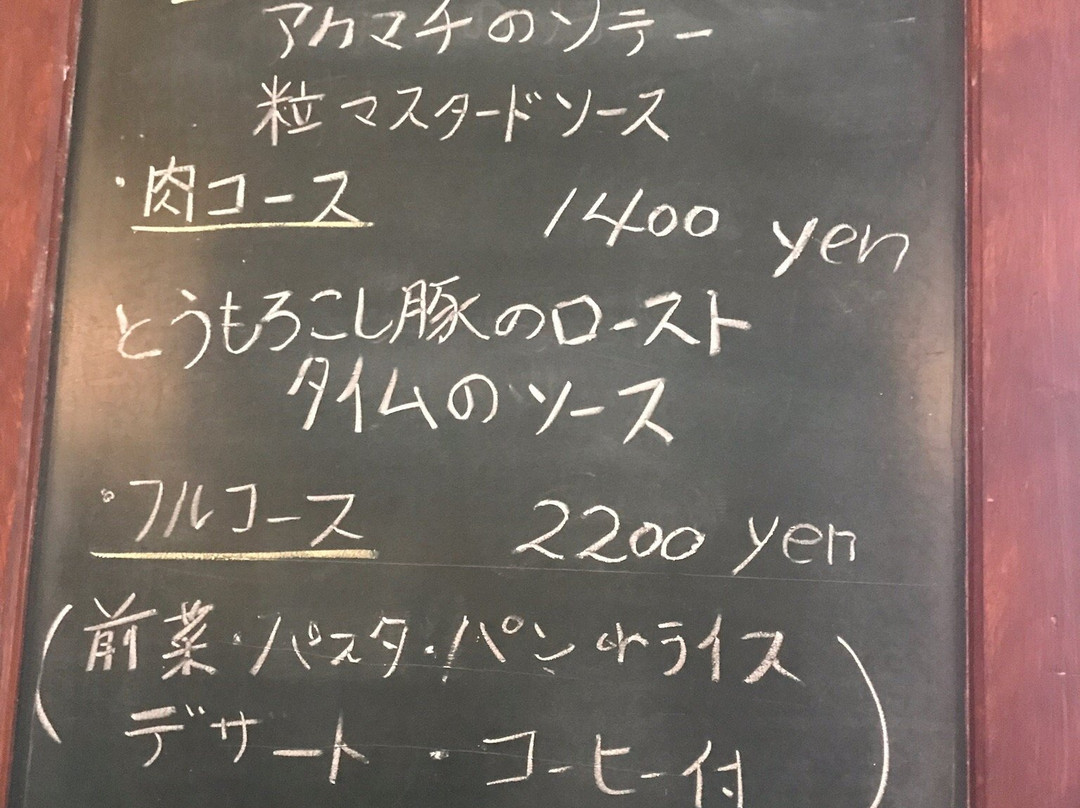 アカマチのソテー
粒マスタードソース
・肉コース 1400 yen
とうもろこし豚のロースト
タイムのソース
・フルコース 2200 yen
(前菜・パスタ・パンorライス
デザート・コーヒー付)